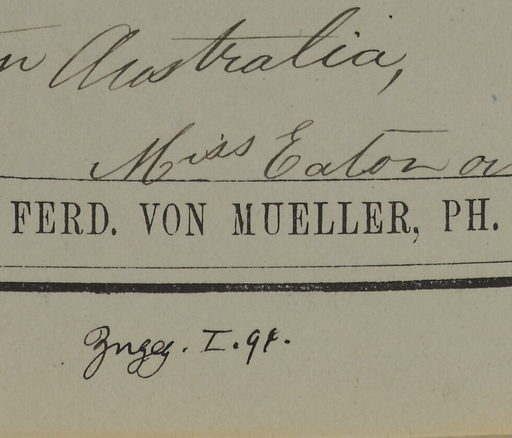 n Australia,
Miss Eaton
FERD. VON MUELLER, PH.
I.